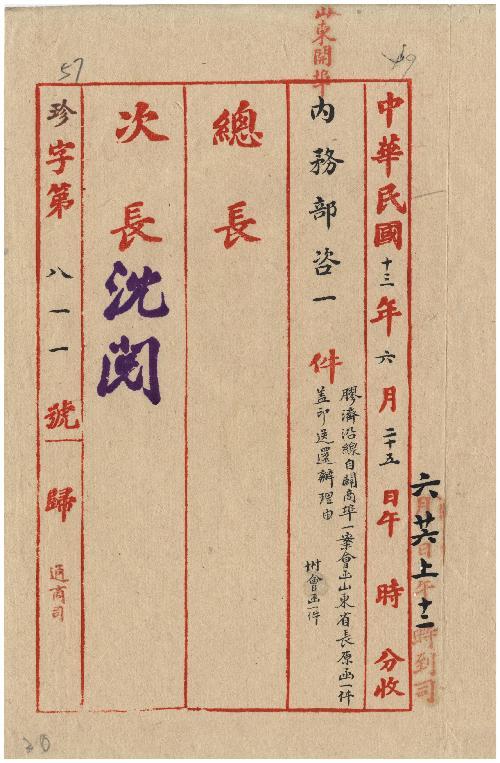 山東開埠
六月廿六日上午十二時到司
中華民國十三年六月二十五日午 時 分收
內務部咨一件
膠濟沿線自闢商埠一案會函山東省長原函一件
蓋印送還辦理由
附會函一件
總長
次長
沈閱
珍字第八一一號歸
通商司
57